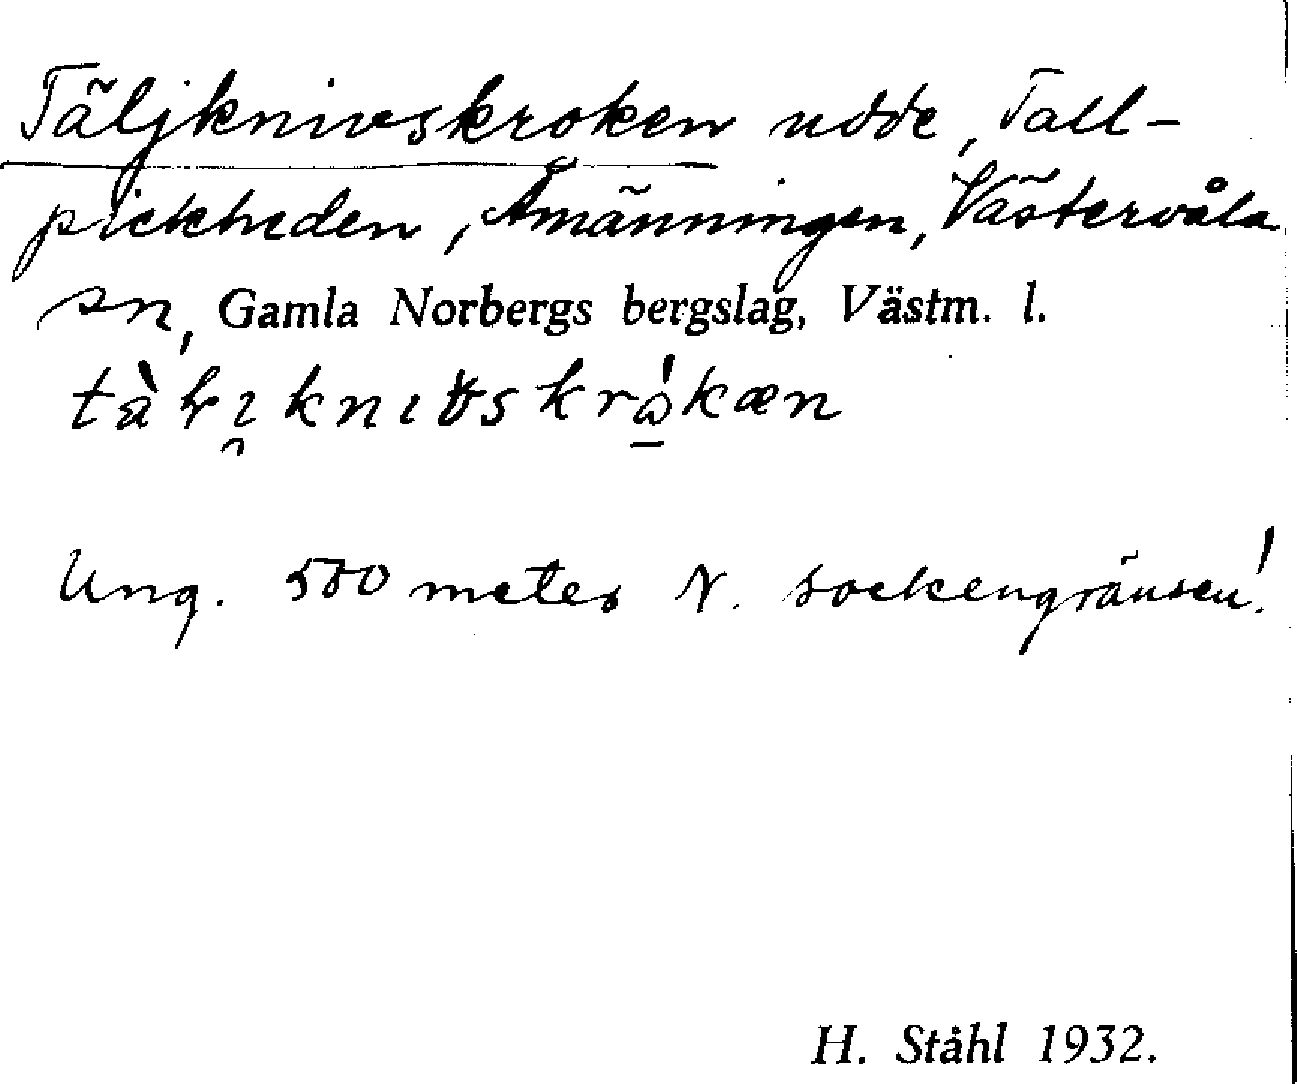 Täljknivskroken udde, Tall-
pickheden, Åmänningen, Västervåla
sn, Gamla Norbergs bergslag, Västm. l.
Ung. 500 meter N. sockengränsen!
H. Ståhl 1932.